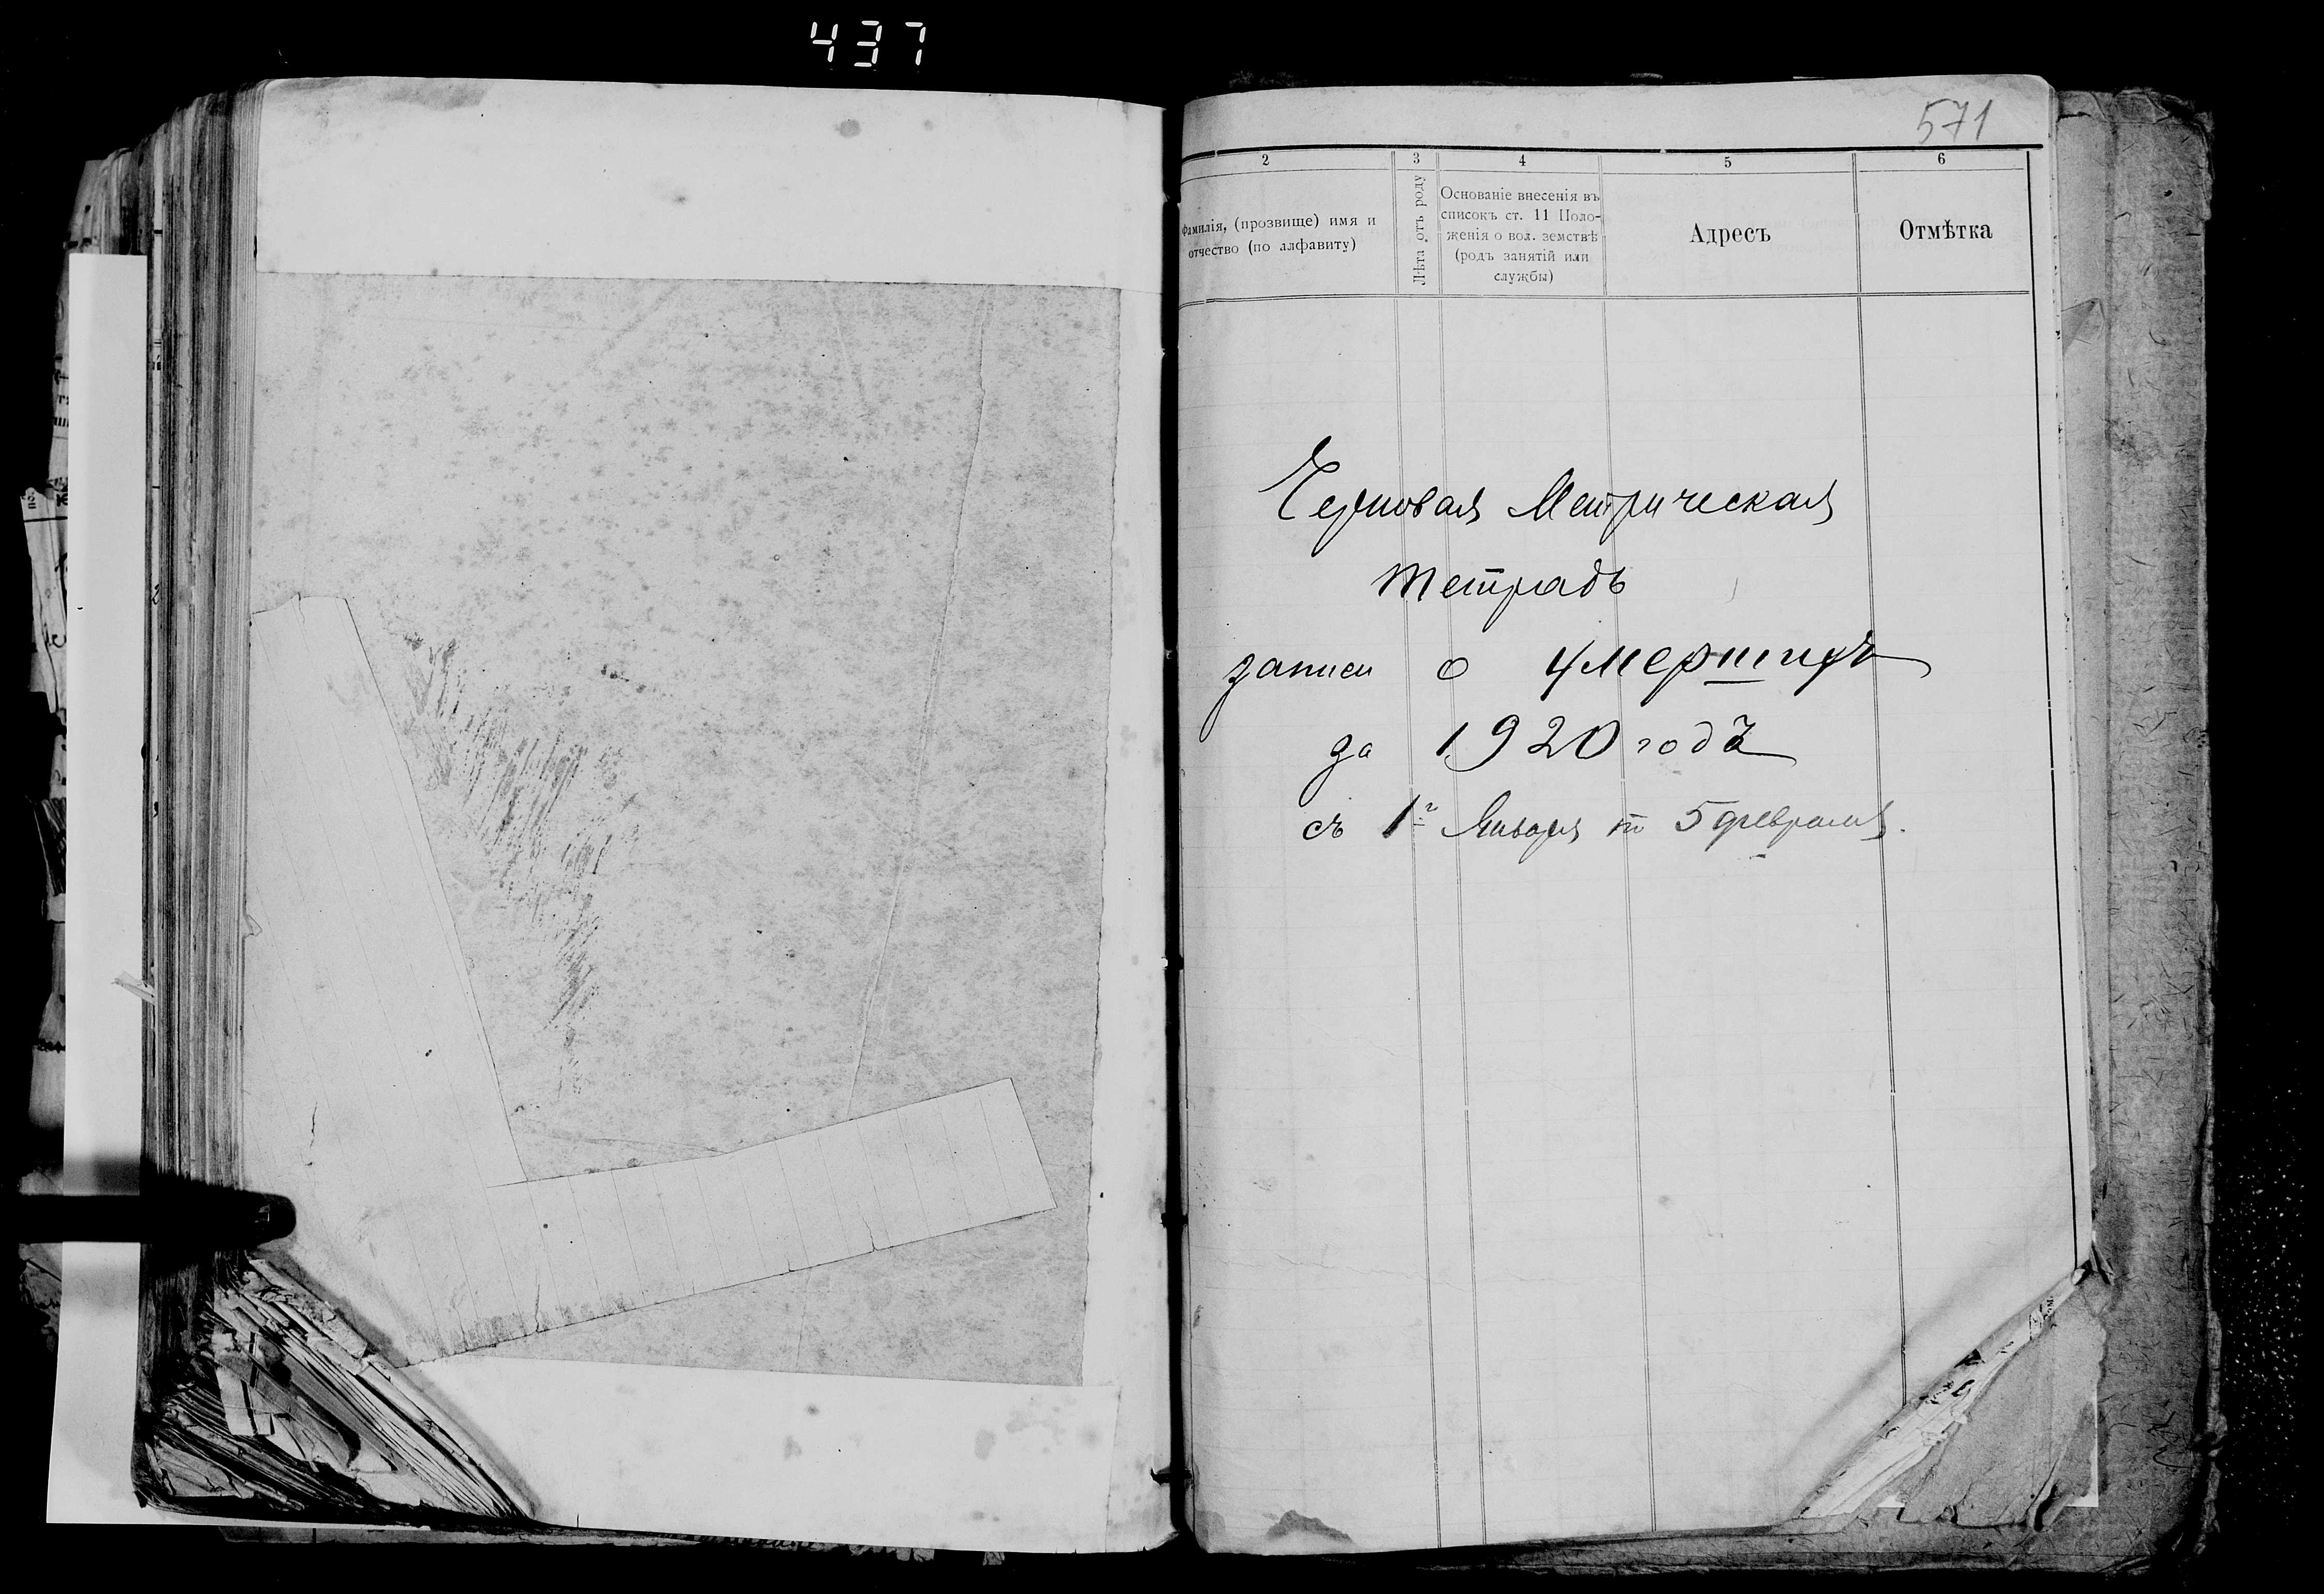 437
571
2
3
4
5
6
Фамилія, (прозвище) имя и
отчество (по алфавиту)
Лѣта отъ роду
Основаніе внесенія въ
списокъ ст. 11 Поло-
женія о вол. земствѣ
(родъ занятій или
службы)
Адресъ
Отмѣтка
Черновая Метрическая
тетрадь
записи о умершихъ
за 1920 годъ
съ 1го Января по 5 февраля.